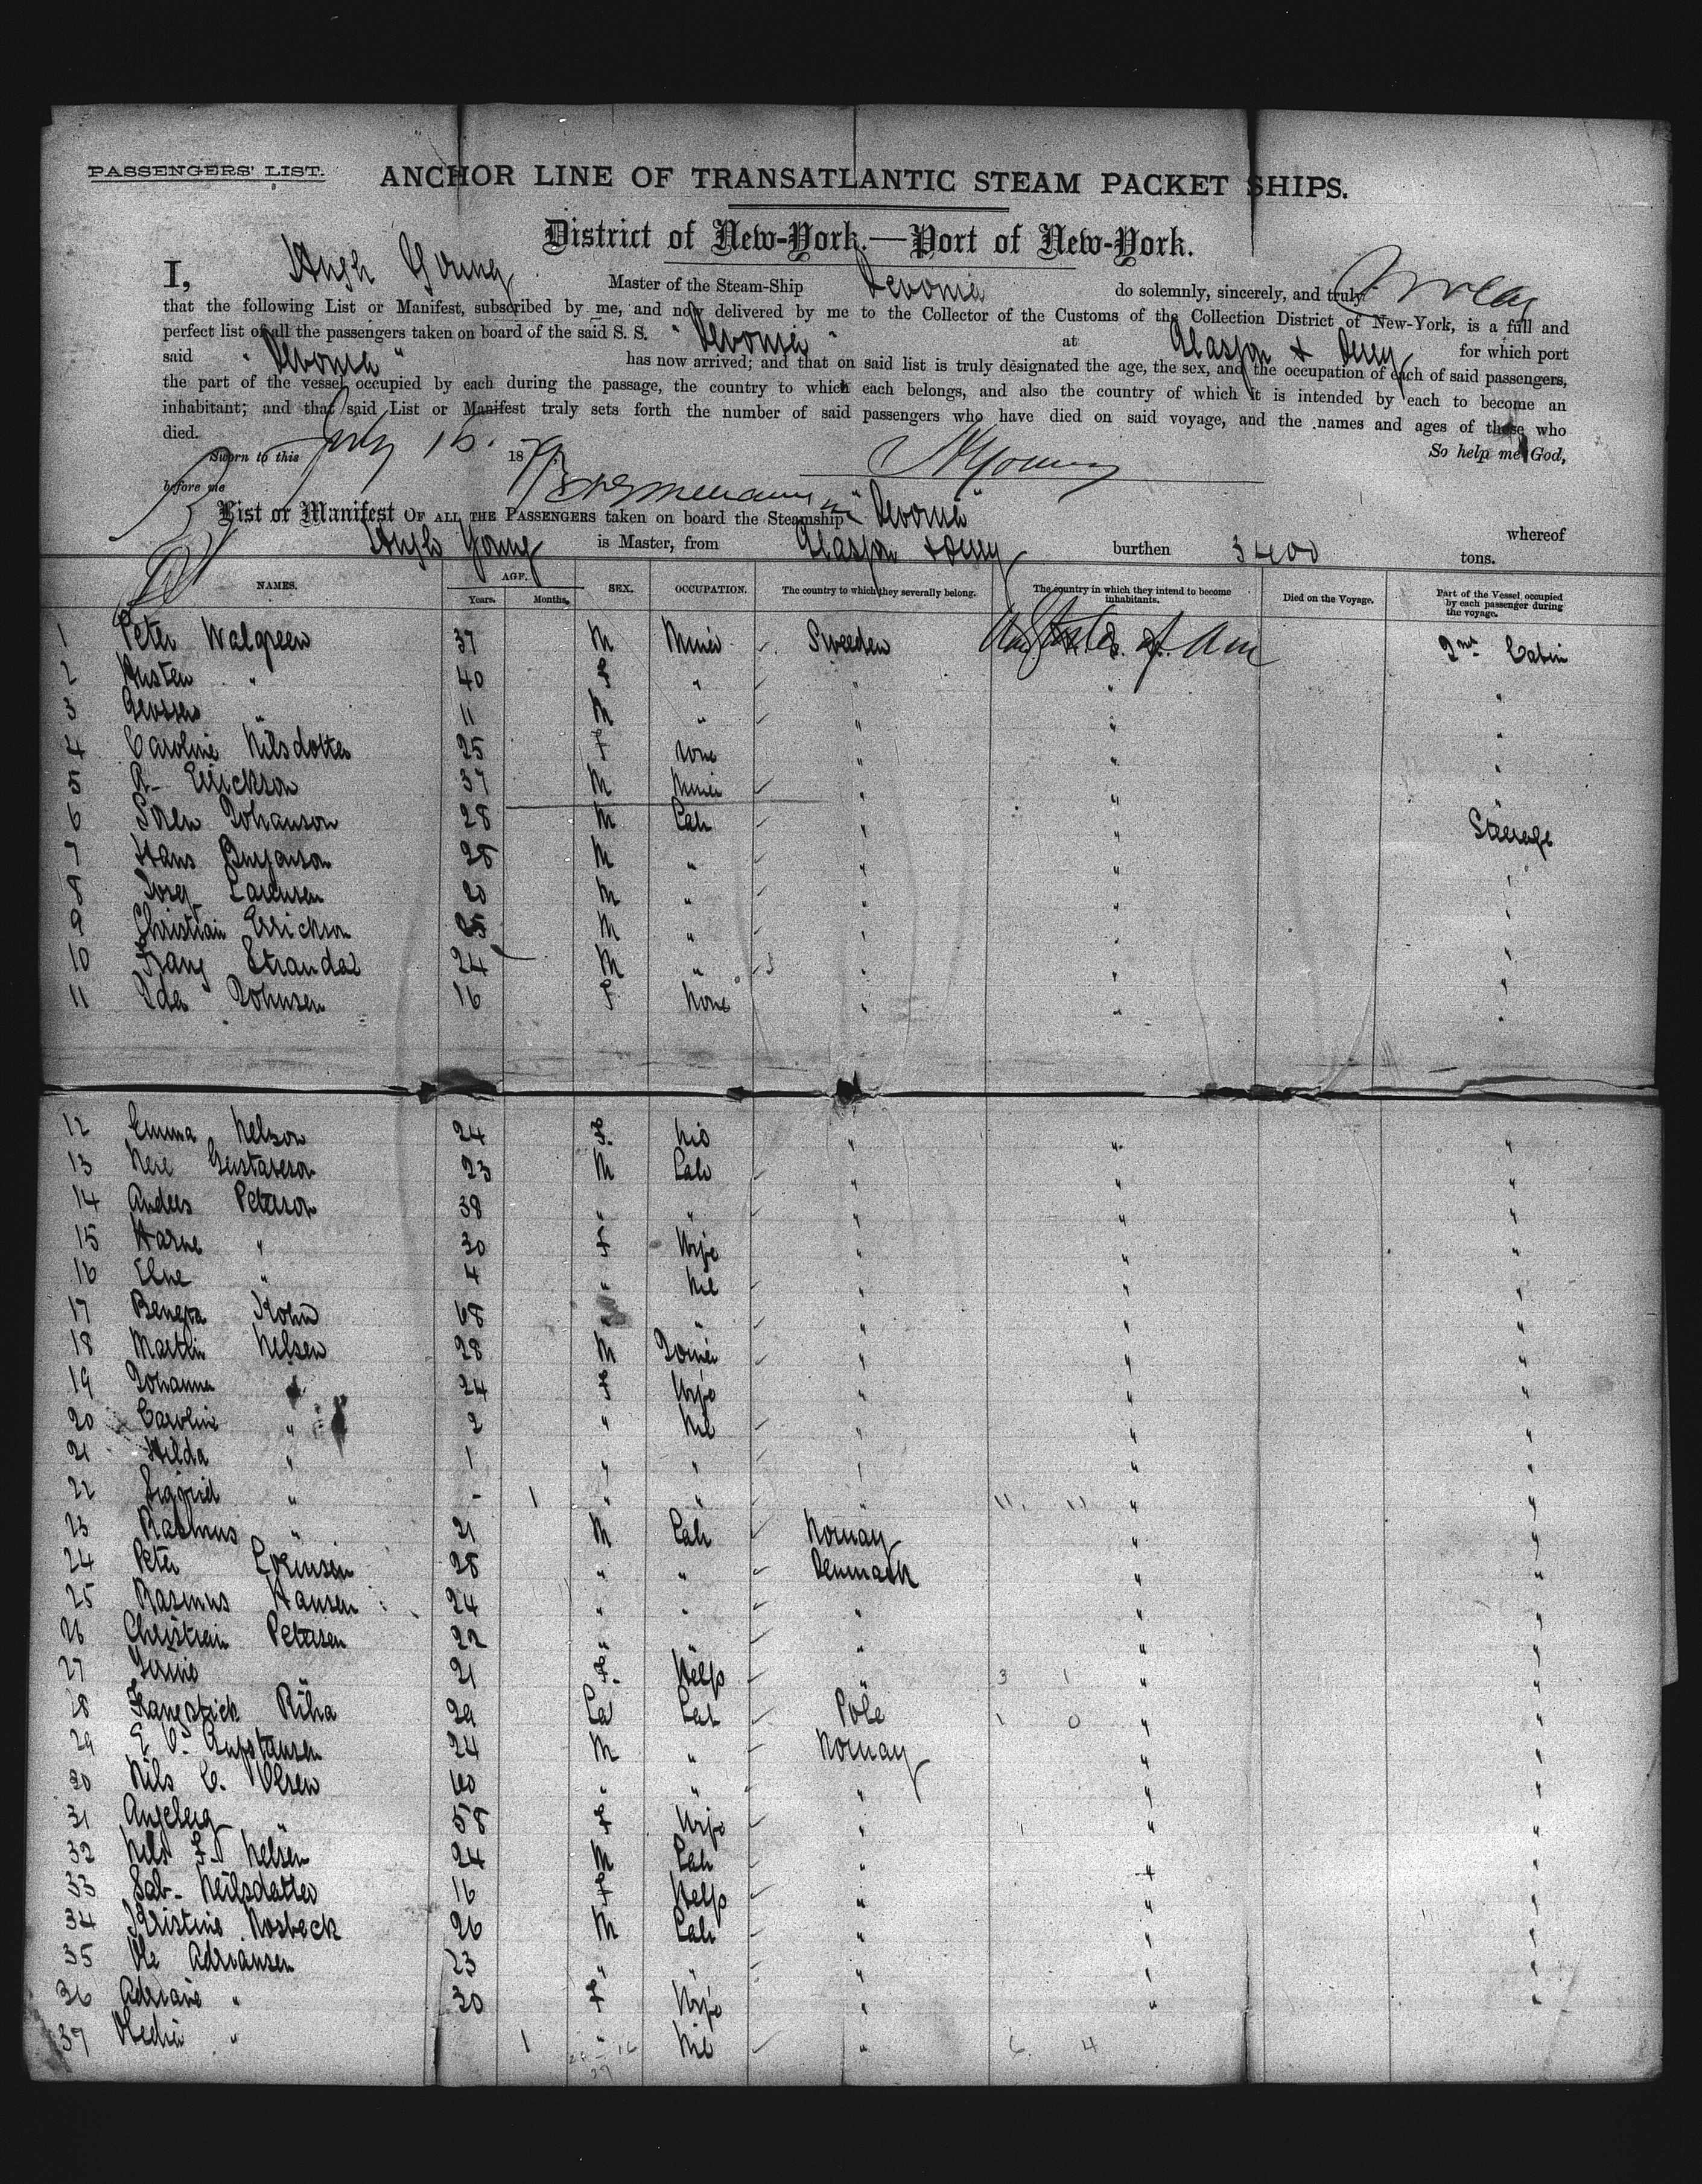 PASSENGERS' LIST.
ANCHOR LINE OF TRANSATLANTIC STEAM PACKET SHIPS.
District of New-York.—Port of New-York.
I, Hugh Young Master of the Steam-Ship Devonia do solemnly, sincerely, and truly
that the following List or Manifest, subscribed by me, and now delivered by me to the Collector of the Customs of the Collection District of New-York, is a full and
perfect list of all the passengers taken on board of the said S. S. "Devonia" at Glasgow & Derry for which port
said "Devonia" has now arrived; and that on said list is truly designated the age, the sex, and the occupation of each of said passengers,
the part of the vessel occupied by each during the passage, the country to which each belongs, and also the country of which it is intended by each to become an
inhabitant; and that said List or Manifest truly sets forth the number of said passengers who have died on said voyage, and the names and ages of those who
died.
So help me God,
Sworn to this July 16. 1879
HYoung
before me
List or Manifest OF ALL THE PASSENGERS taken on board the Steamship "Devonia" whereof
Hugh Young is Master, from Glasgow & Derry burthen 3400 tons.
NAMES. AGE. Years. Months. SEX. OCCUPATION. The country to which they severally belong. The country in which they intend to become inhabitants. Died on the Voyage. Part of the Vessel occupied by each passenger during the voyage.
1 Peter Walgreen 37 M Miner Sweeden States of Am 2nd Cabin
2 " 40 F " " " "
3 " 11 M " " " "
4 Caroline Nilsdotter 25 F None " " "
5 Errickson 37 M Miner " " "
6 Johanson 28 M Lab " " Steerage
7 Hans 28 M " " " "
8 Larensen 20 M " " " "
9 Christian Errickson 25 M " " " "
10 Franz Strandal 24 M " " " "
11 Ida Johnsen 16 F None " " "
12 Emma Nelson 24 F " " "
13 Gustaveson 23 M Lab " " "
14 Anders Peterson 38 " " " " "
15 " 30 F Wife " " "
16 Elne " 4 " Nil " " "
17 68 " " " " "
18 Martin Nelsen 28 M Joiner " " "
19 Johanna " 24 F Wife " " "
20 Caroline " 2 " Nil " " "
21 Hilda " 1 " " " " "
22 Sigrid " - 1 " " " " "
23 Rasmus " 21 M Lab Norway " "
24 Peter 28 " " Denmark " "
25 Rasmus Hansen 24 " " " " "
26 Christian Petersen 22 " " " " "
27 " 21 F Help " 3 1 " "
28 Riha 29 Lab Pole 1 0 " "
29 24 M " Norway " "
30 Nils C. Olsen 60 " " " " "
31 " 58 F Wife " " "
32 Nils F. Nelsen 24 M Lab " " "
33 Neilsdatter 16 F Help " " "
34 Kristine Nosbeck 26 M Lab " " "
35 Ole Adriansen 23 " " " " "
36 Adriane " 30 F Wife " " "
37 " 1 " Nil " 6 4